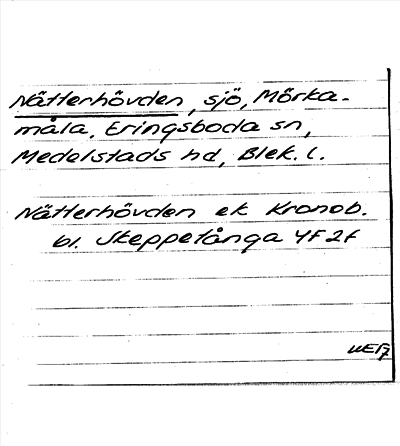 Nätterhövden, sjö, Mörka-
måla, Eringsboda sn,
Medelstads hd, Blek. l.
Nätterhövden ek Kronob.
bl. Skeppetånga 4F 2f